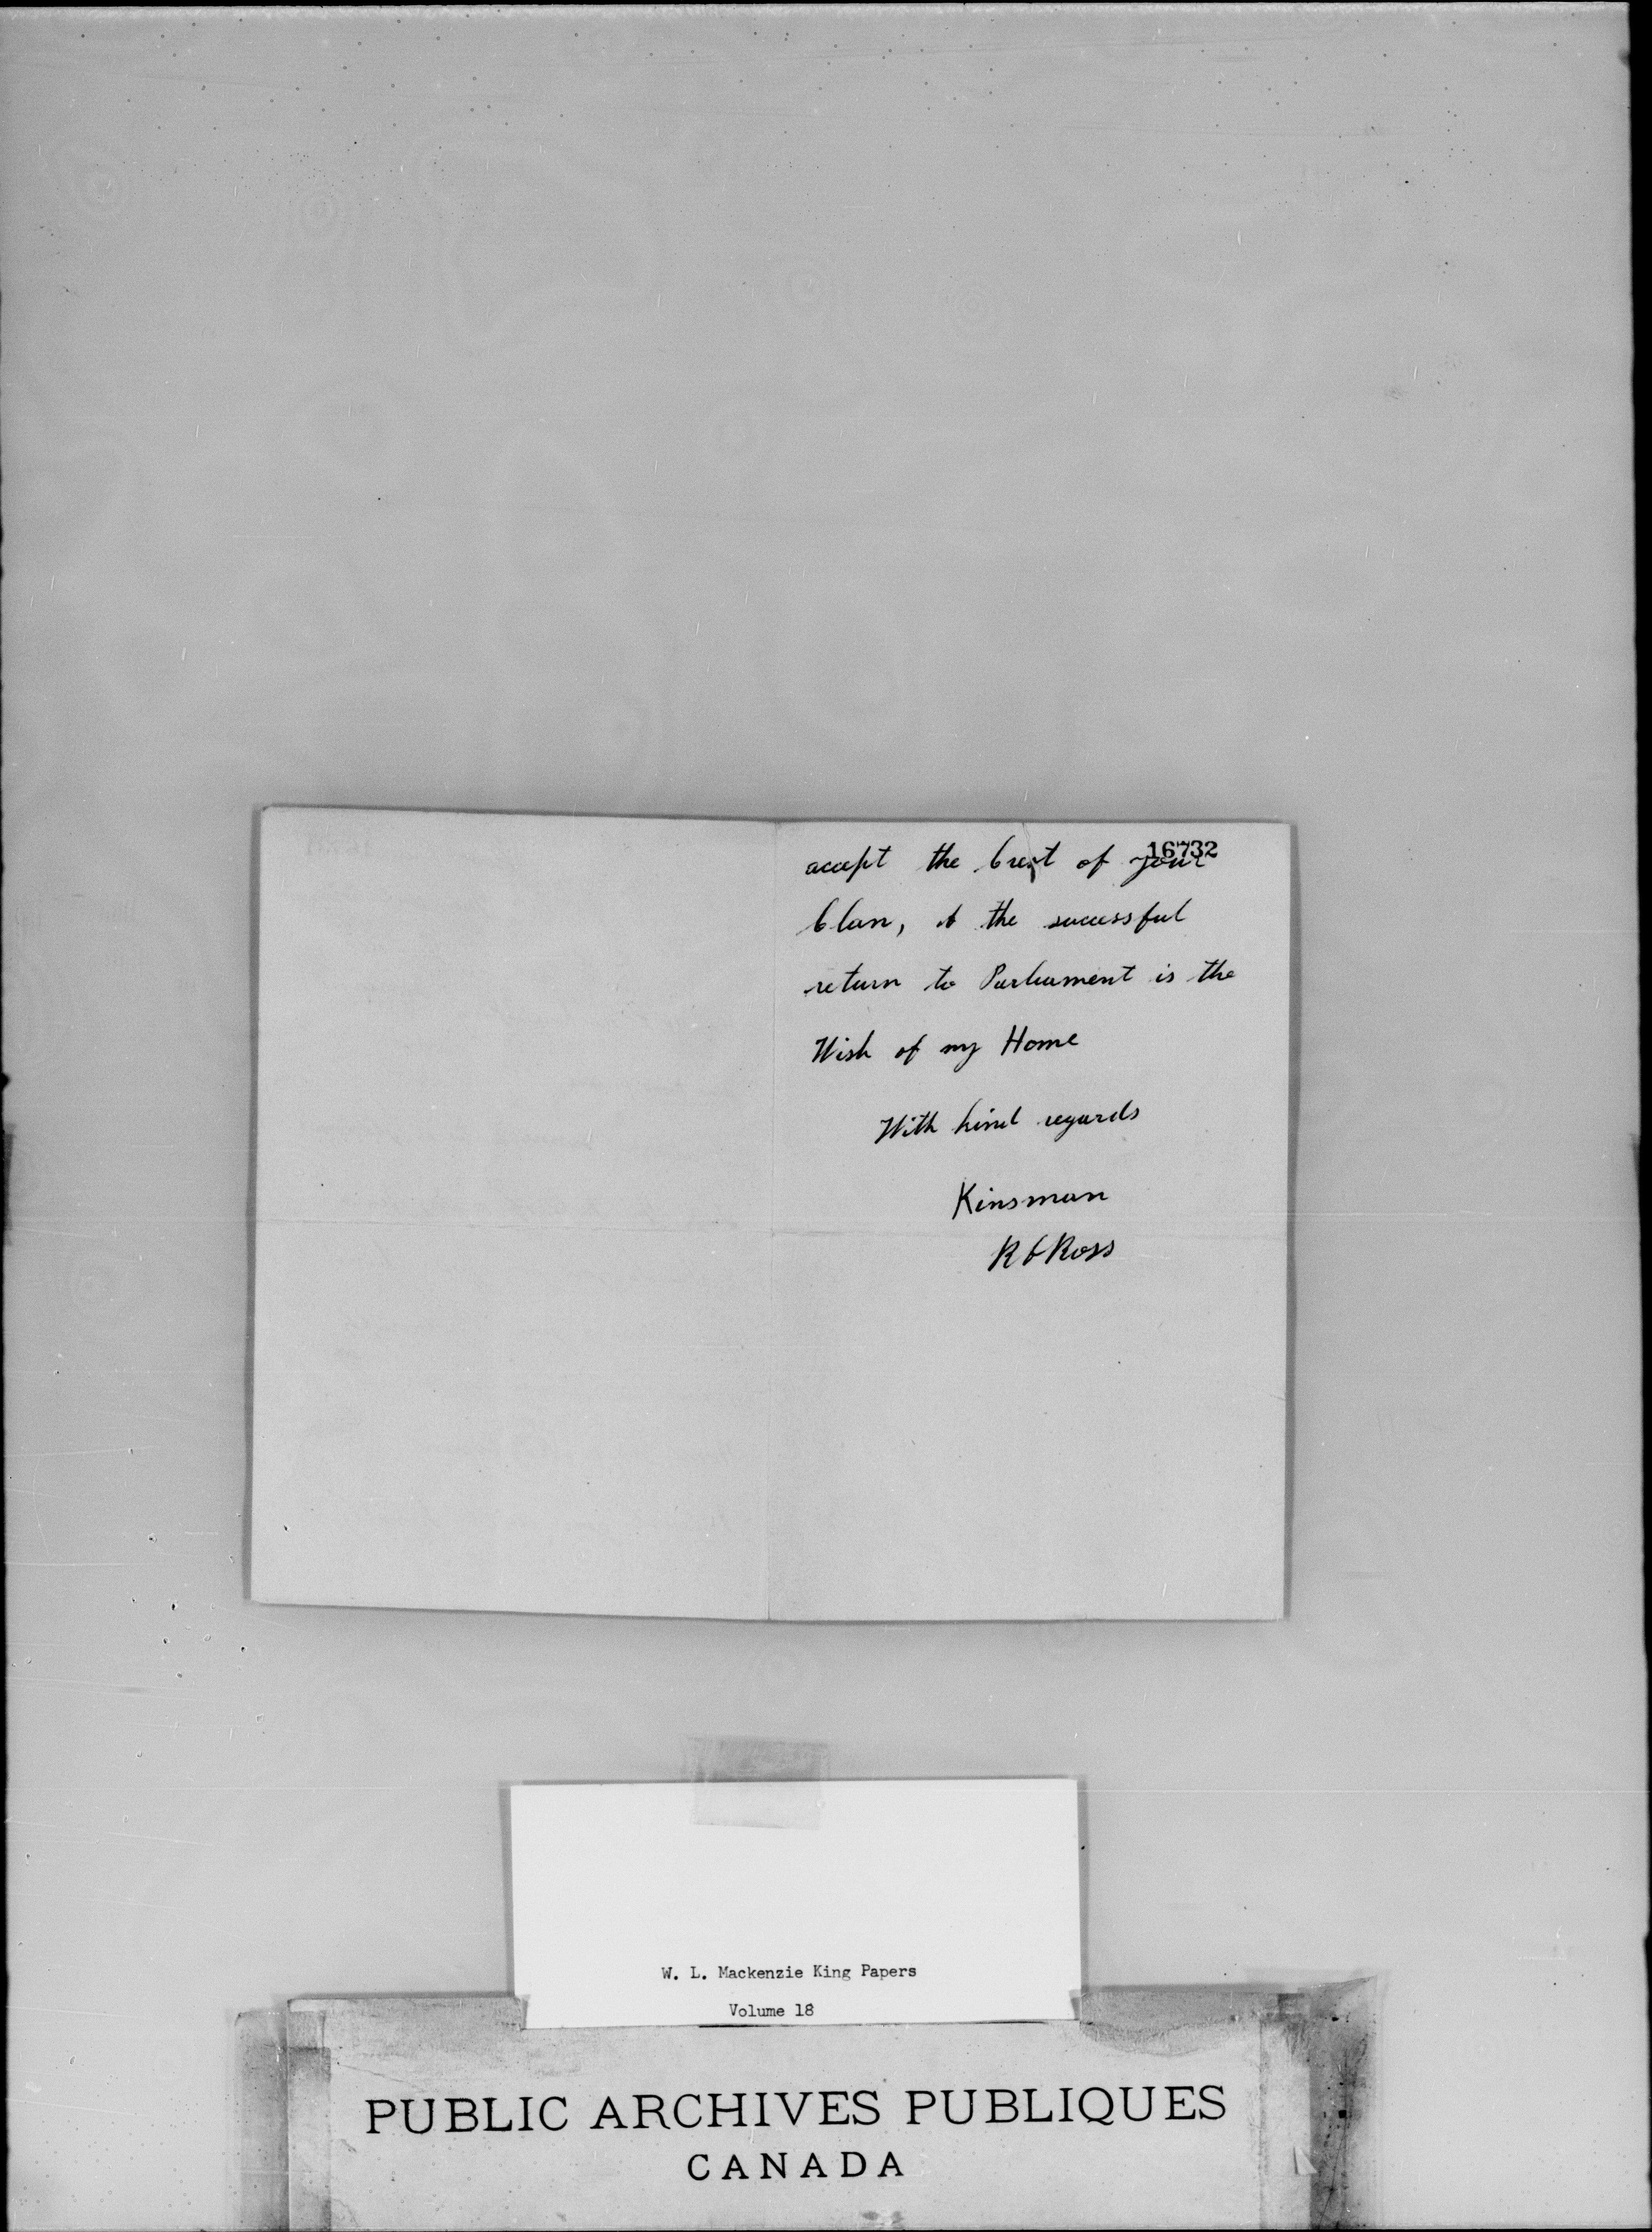 16732
accept the Crest of your
Clan, & the successful
return to Parliament is the
Wish of my Home
With kind regards
Kinsman
R C Ross
W. L. Mackenzie King Papers
Volume 18
PUBLIC ARCHIVES PUBLIQUES
CANADA